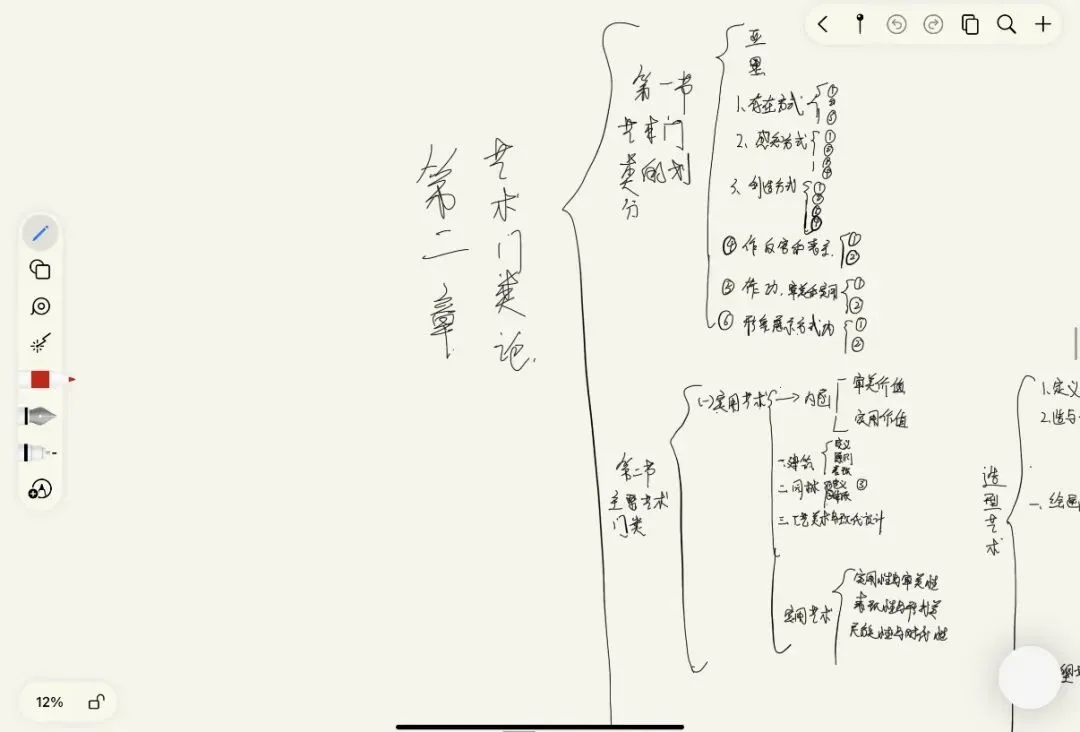 第二章
艺术门类论.
第一节
艺术门
类的划
分
亚
里
1、存在方式{①
②
③
2、感知方式{①
②
③
④
3、创造方式{①
②
③
④
④ 作
{①
②
⑤ 作功,审美和实用{①
②
⑥ 形象展示方式{①
②
第二节
主要艺术
门类
(一)实用艺术
→内涵
审美价值
实用价值
一、建筑
定义
原则
二、园林
定义
③
三、工艺美术与现代设计
实用艺术
实用性与审美性
表现性与形式美
民族性与时代性
造型艺术
1.定义
2.造与
一、绘画
12%